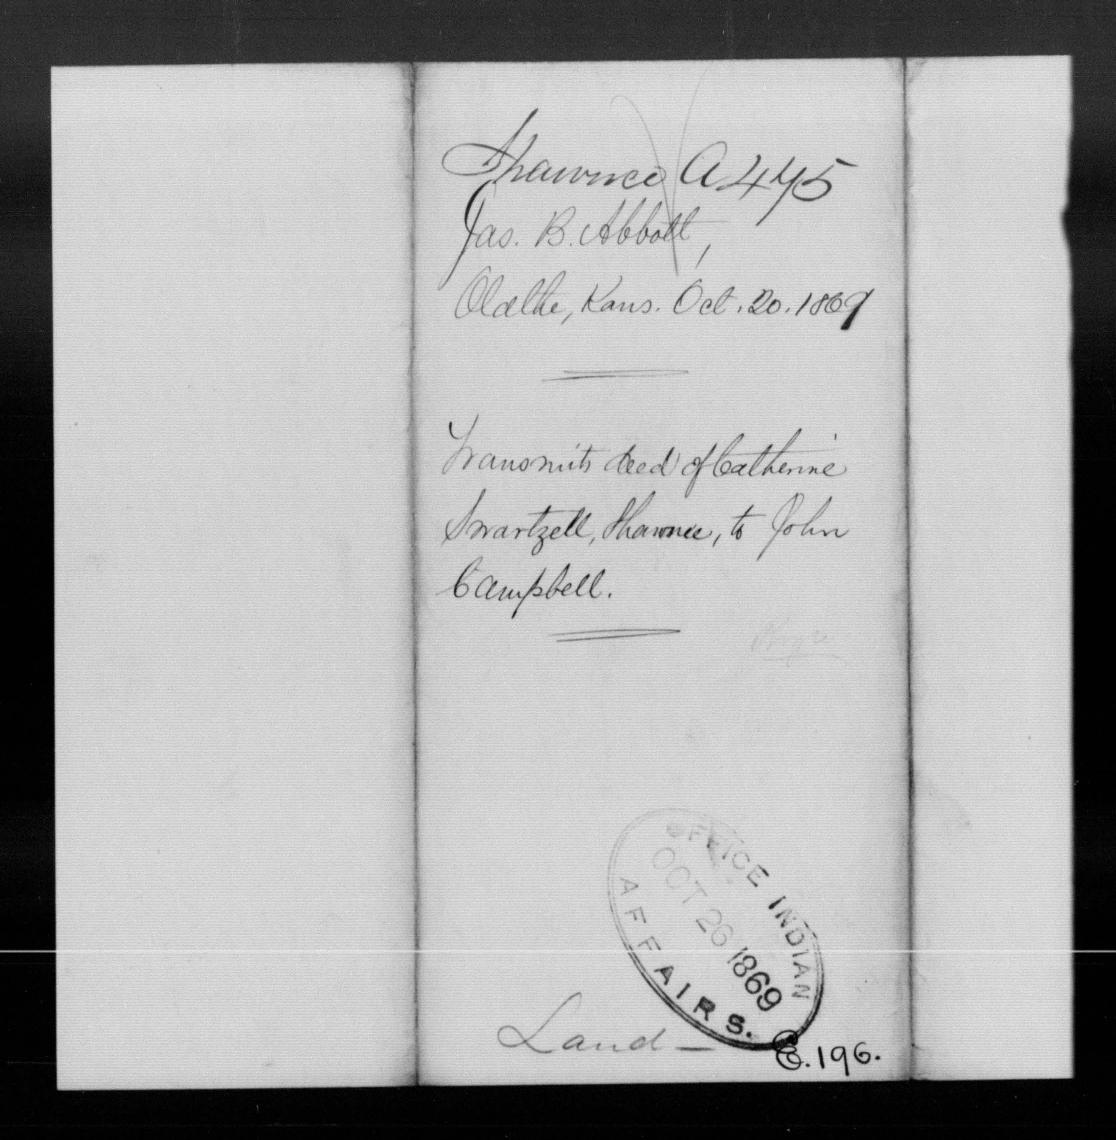 Shawnee A 475
Jas. B. Abbott,
Olathe, Kans. Oct. 20. 1869
Transmits deed of Catherine
Swartzell, Shawnee, to John
Campbell.
OFFICE INDIAN
OCT 26 1869
AFFAIRS.
Land –
E. 196.